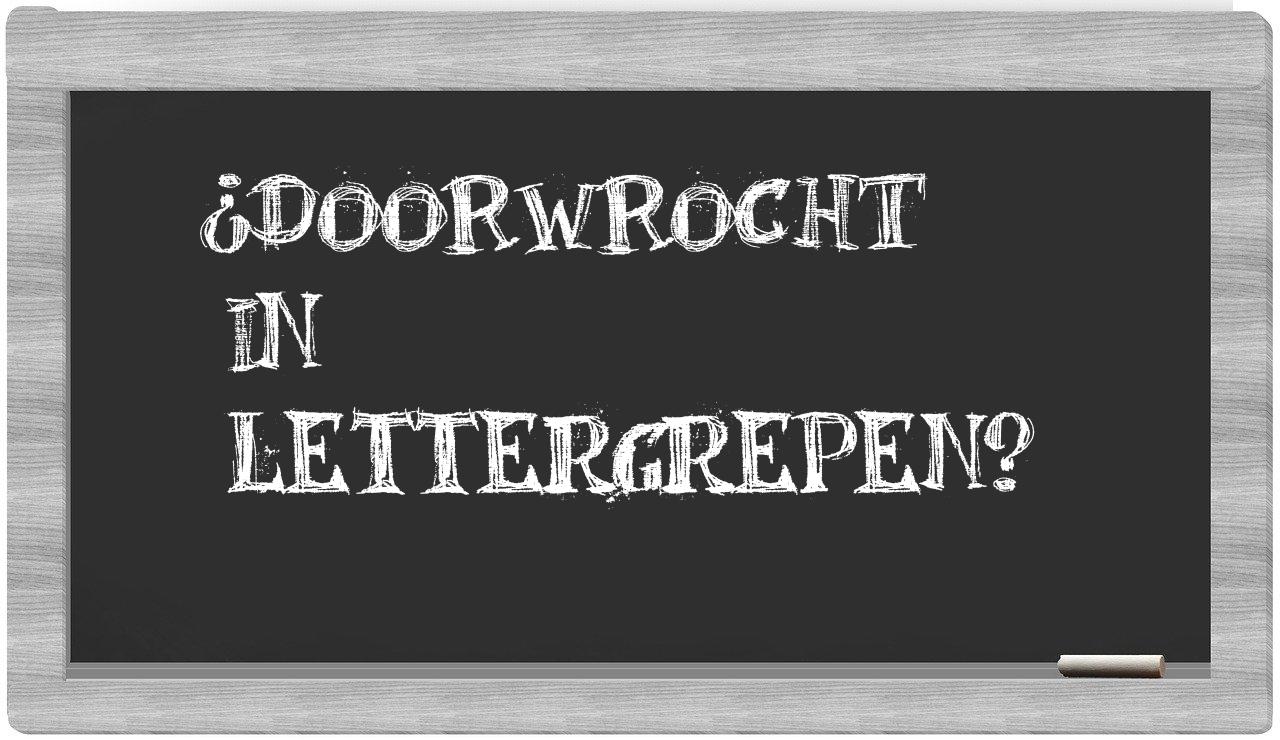 ¿DOORWROCHT
IN
LETTERGREPEN?